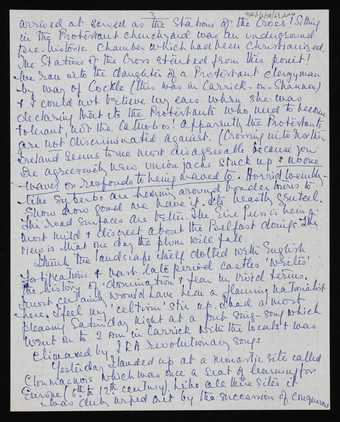 arrived at served as the Stations of the Cross! Sitting
in the Protestant churchyard was an underground
pre-historic chamber which had been Christianised.
The Stations of the Cross started from this point!
We ran into the daughter of a Protestant clergyman
by way of Cockle (this was in Carrick-on-Shannon)
& I could not believe my ears when she was
declaring that its the Protestants who need to become
tolerant, not the Catholics! Apparently the Protestants
are not discriminated against. (Crossing into Northern
Ireland seems to me most disagreeable because you
see aggressively new union jacks stuck up & no one
waves or responds to being waved to. Horrid wealthy
like suburbs are
show how good we have it. Its wealth, genteel.
The road surfaces are better. The Eire Press is being
most mild & discreet about the Belfast doings. The
view is that one day the plum will fall.
I think the landscape itself dotted with English
fortifications & Norman late period castles writes
the history of domination & fear in vivid terms.
I most certainly would have been a flaming nationalist
here. I feel my 'celticism' stir. We had a most
pleasing Saturday night at a pub sing-song which
went on to 2 am in Carrick with the locals & was
eliquored by IRA revolutionary songs
Yesterday I landed up at a monastic site called
Clonmacnois which was once a seat of learning for
Europe (6th to 12th century). Like all these sites it
was clubbed out by the succession of conquerors